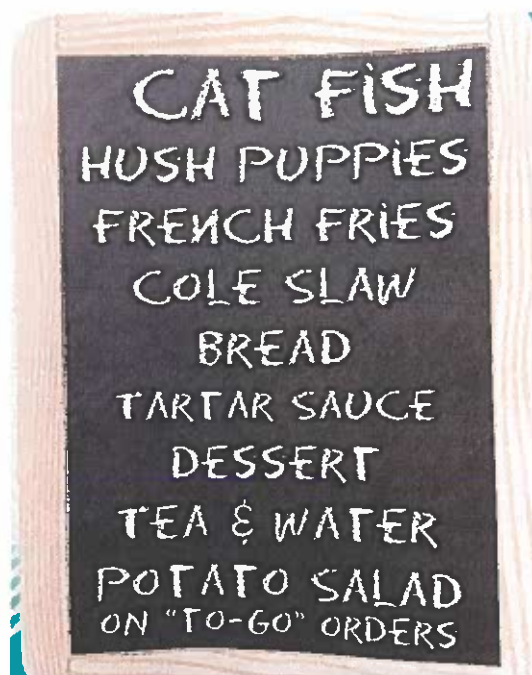 CAT FISH
HUSH PUPPIES
FRENCH FRIES
COLE SLAW
BREAD
TARTAR SAUCE
DESSERT
TEA & WATER
POTATO SALAD
ON "TO-GO" ORDERS